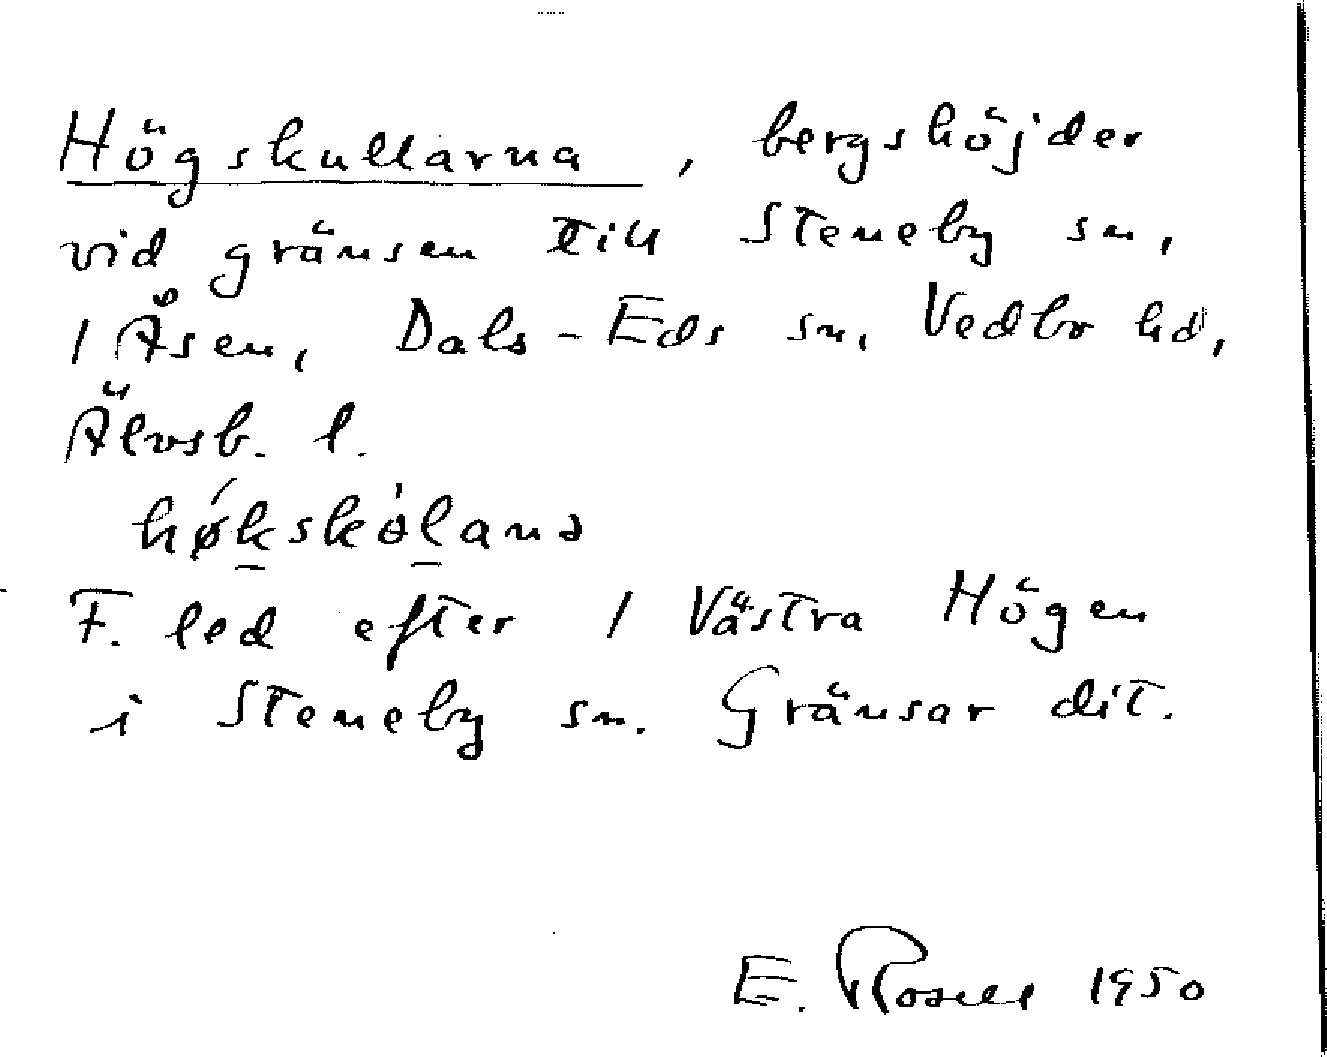 Högskullarna, bergshöjder
vid gränsen till Steneby sn,
1 Åsen, Dals-Eds sn, Vedbo hd,
Älvsb. l.
hǿkskòlana
F. led efter 1 Västra Högen
i Steneby sn. Gränsar dit.
E. Rosell 1950